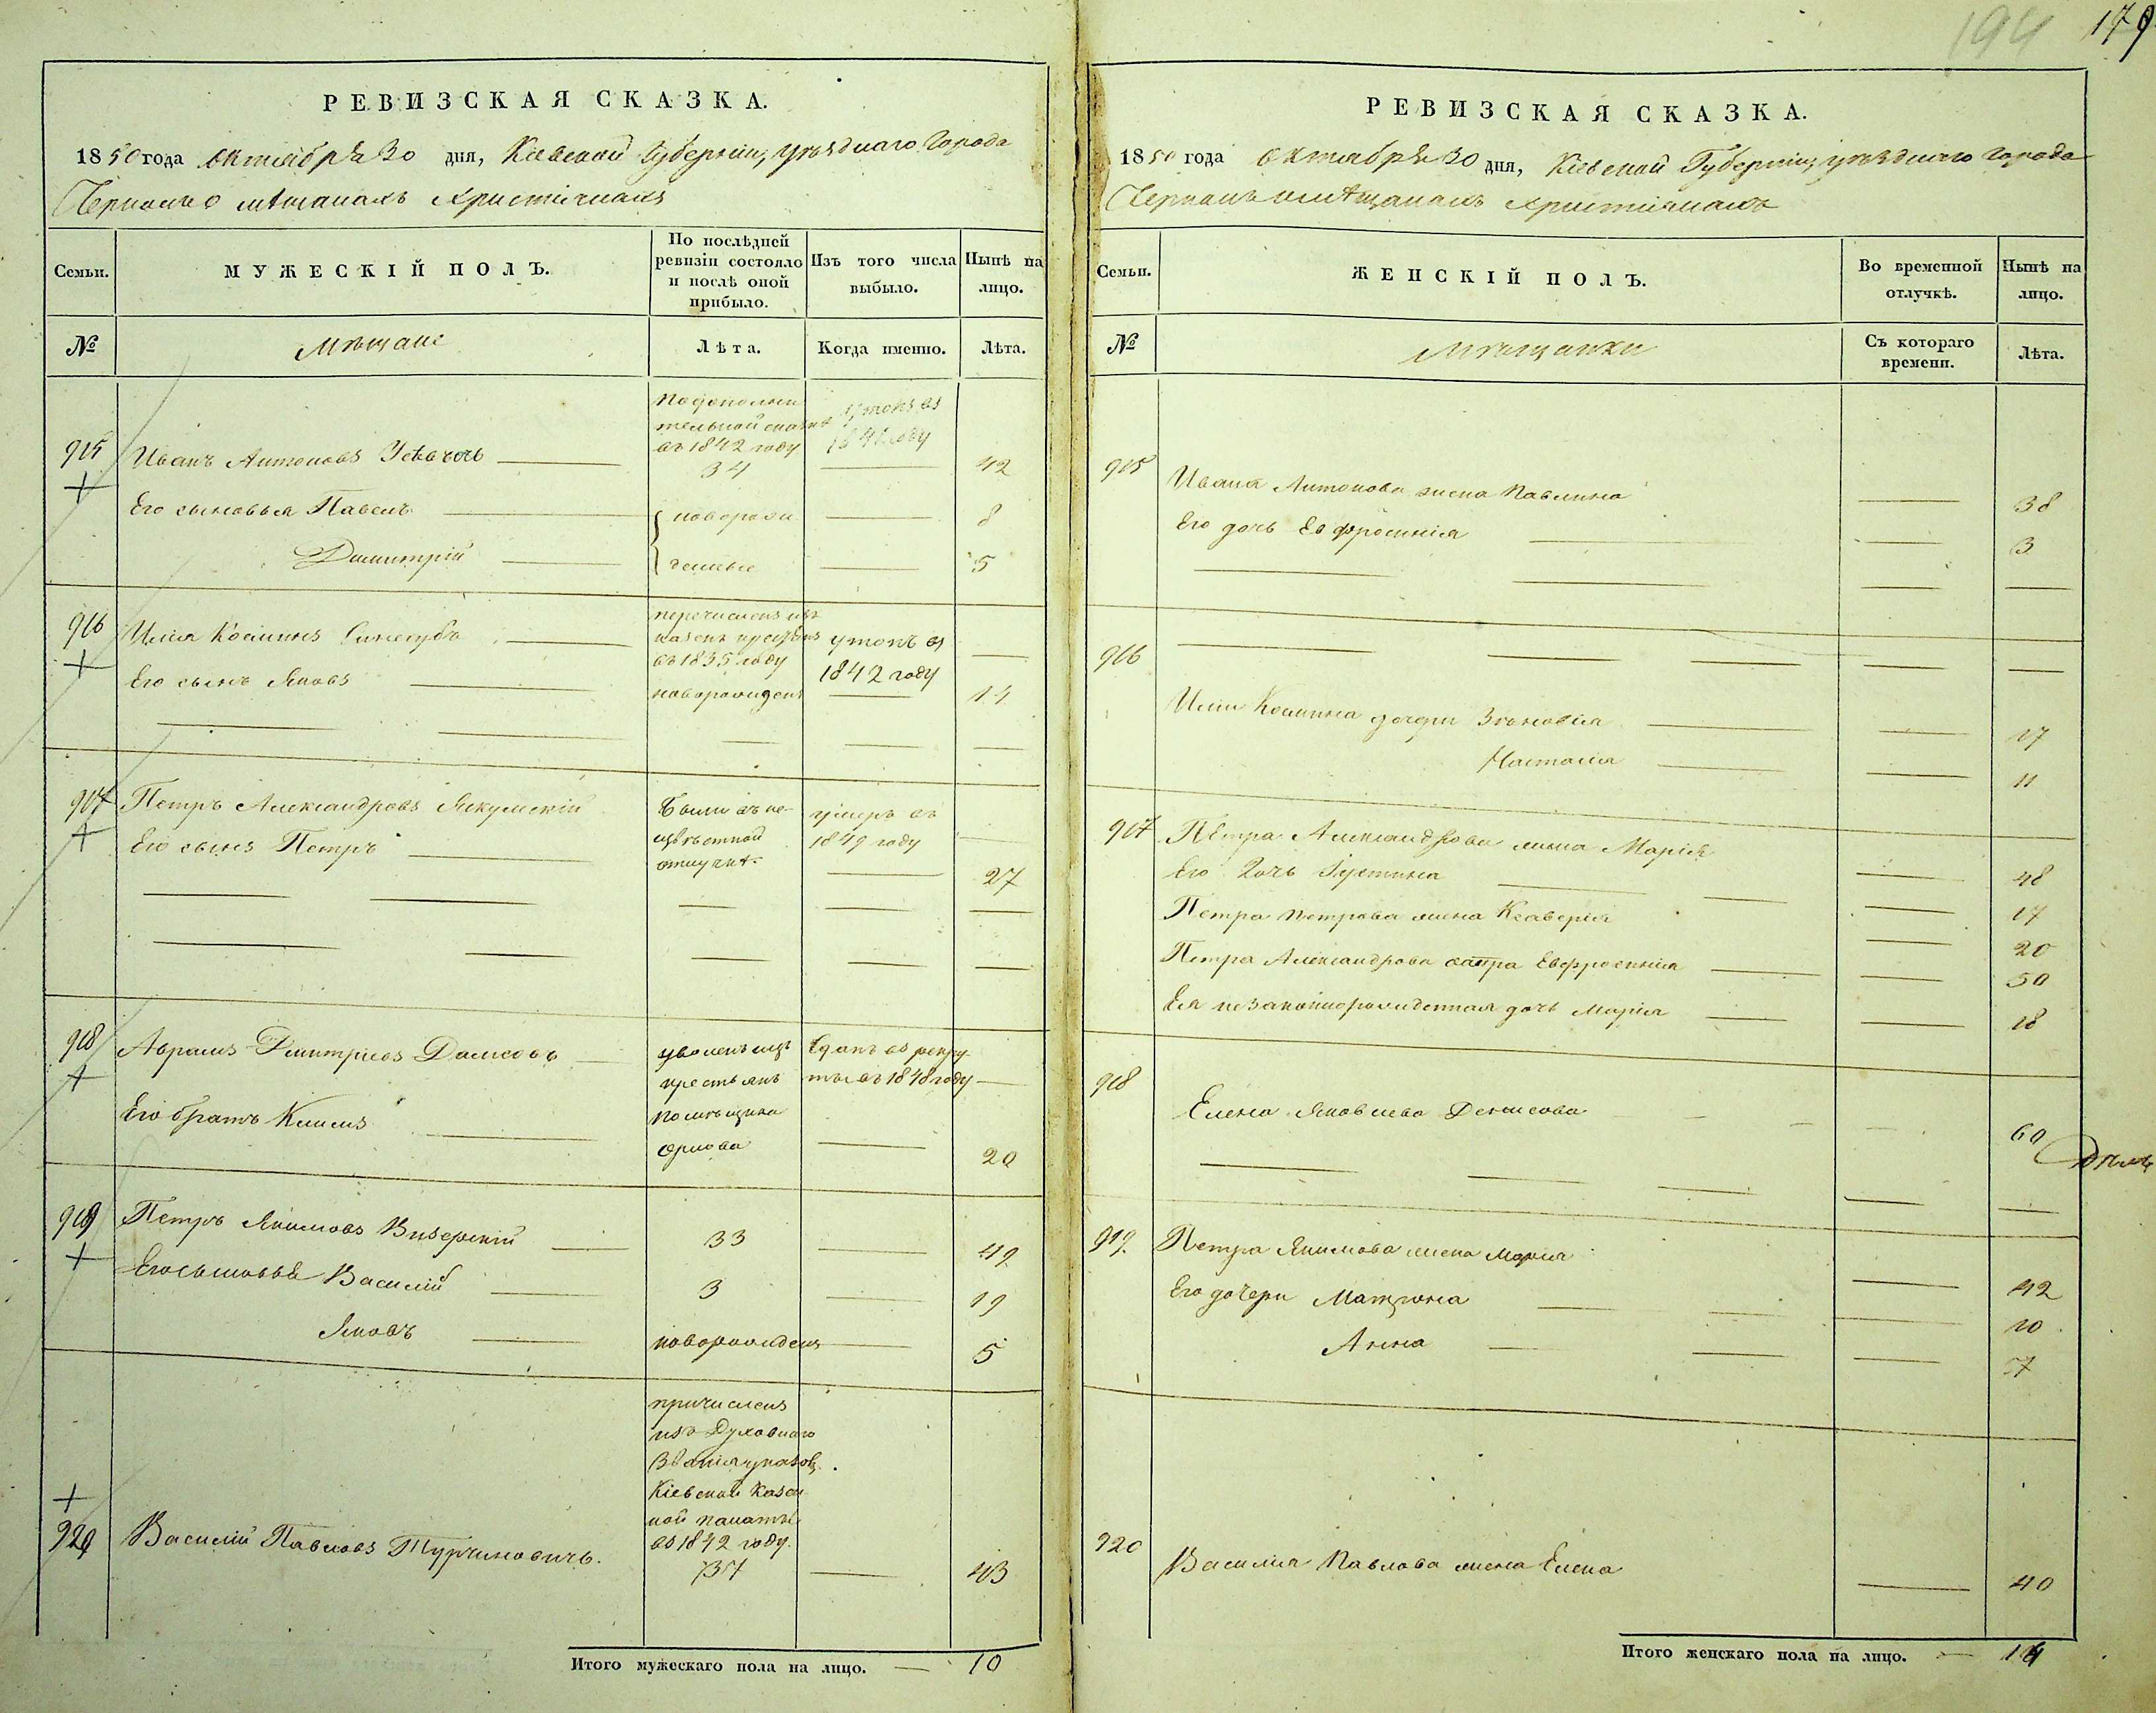 194 179
РЕВИЗСКАЯ СКАЗКА.
1850 года октября 30 дня, Кіевской Губерніи, уѣзднаго Города
мѣщанахъ христіянахъ
Семьи.
МУЖЕСКІЙ ПОЛЪ.
По послѣдней ревизіи состояло и послѣ оной прибыло.
Изъ того числа выбыло.
Нынѣ на лицо.
№
Мѣщане
Лѣта.
Когда именно.
Лѣта.
по дополни
тельной сказкѣ
въ 1842 году
915 Иванъ Антоновъ 34 42
Его сыновья Павелъ новорож 8
Димитрій денные 5
перечисленъ изъ
казен крестьянъ утопъ въ
916 Илія въ 1835 году 1842 году
Его сынъ Яковъ новорожденъ 14
917 Петръ Александровъ Были въ не умеръ въ
Его сынъ Петръ извѣстной 1849 году
отлучкѣ 27
918 Аврамъ Дмитріевъ уволенъ изъ Сданъ въ рекру
крестьянъ ты въ 1848 году
Его братъ Климъ помѣщика
Орлова 20
919 Петръ Якимовъ 33 49
Его сыновья Василій 3 19
Яковъ новорожденъ 5
причисленъ
изъ Духовнаго
Кіевской Казен
ной палаты
въ 1842 году
920 Василій Павловъ Турчиновичъ. 34 43
Итого мужескаго пола на лицо. 10
РЕВИЗСКАЯ СКАЗКА.
1850 года октября 30 дня, Кіевской Губерніи, уѣзднаго города
мѣщанахъ христіянахъ
Семьи.
ЖЕНСКІЙ ПОЛЪ.
Во временной отлучкѣ.
Нынѣ на лицо.
№
Мѣщанки
Съ котораго времени.
Лѣта.
915 Ивана Антонова жена Павлина 38
Его дочь Евфросинія 3
916
Иліи дочери Зѣновія 17
Настасія 11
917 Петра Александрова жена Марія 48
Его дочь Іустина 17
Петра Петрова жена Ксаверія 20
Петра Александрова сестра Евфросинія 50
Ея незаконнорожденная дочь Марія 18
918 Елена Яковлева Денисова 60
919. Петра Якимова жена Марія 42
Его дочери Матрона 10
Анна 7
920 Василія Павлова жена Елена 40
Итого женскаго пола на лицо. 14